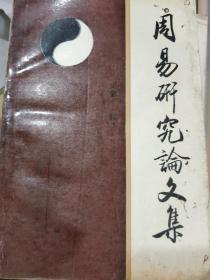 周易研究論文集